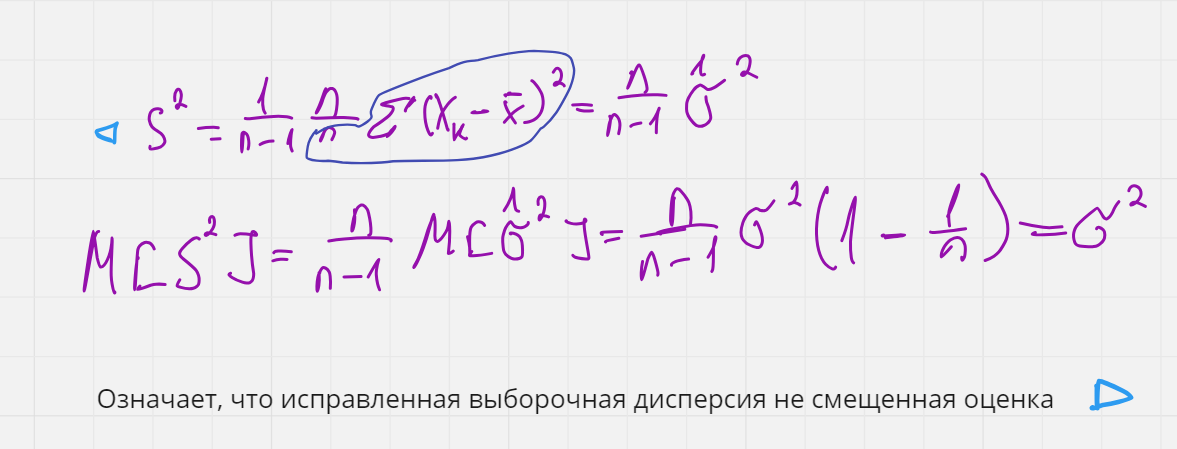 S² = 1/(n-1) n/n Σ(X_k - x̄)² = n/(n-1) σ̂²
M[S²] = n/(n-1) M[σ̂²] = n/(n-1) σ²(1 - 1/n) = σ²
Означает, что исправленная выборочная дисперсия не смещенная оценка